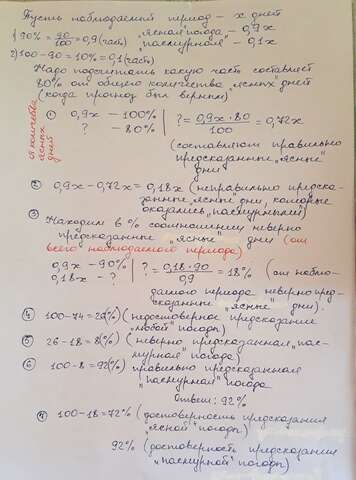 Пусть наблюдаемый период – x дней
1) 90% = 90/100 = 0,9 (часть) „ясная" погода – 0,9x
„пасмурная" – 0,1x
2) 100-90 = 10% = 0,1 (часть)
Надо подсчитать какую часть составляет
80% от общего количества „ясных" дней
(когда прогноз был верным)
от количества ясных дней
① 0,9x – 100%
? – 80%
? = 0,9x • 80 / 100 = 0,72x
(составляют правильно
предсказанные „ясные"
дни)
② 0,9x – 0,72x = 0,18x (неправильно предска-
занные ясные дни, которые
оказались „пасмурными")
③ Находим в % соотношении неверно
предсказанные „ясные" дни (от
всего наблюдаемого периода)
0,9x – 90%
0,18x – ?
? = 0,18 • 90 / 0,9 = 18% (от наблю-
даемого периода неверно пред-
сказанные „ясные" дни).
④ 100-74 = 26(%) (недостоверное предсказание
„любой" погоды)
⑤ 26-18 = 8(%) (неверно предсказанная „пас-
мурная" погода)
⑥ 100-8 = 92(%) правильно предсказанная
„пасмурная" погода
Ответ: 92%
100-18 = 72% (достоверность предсказания
„ясной" погоды)
92% (достоверность предсказания
„пасмурной" погоды)